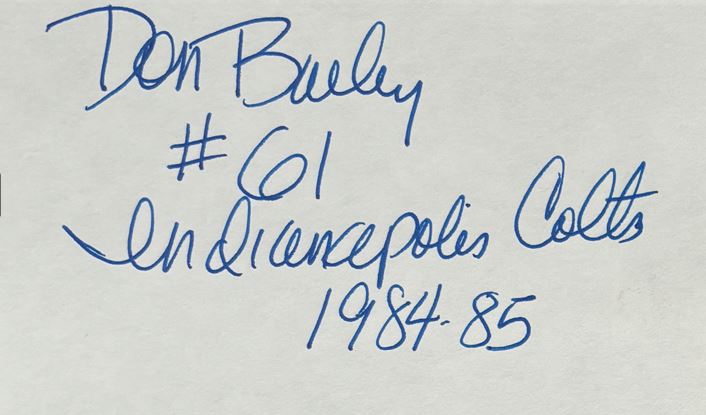 Don Bailey
#61
Indianapolis Colts
1984-85